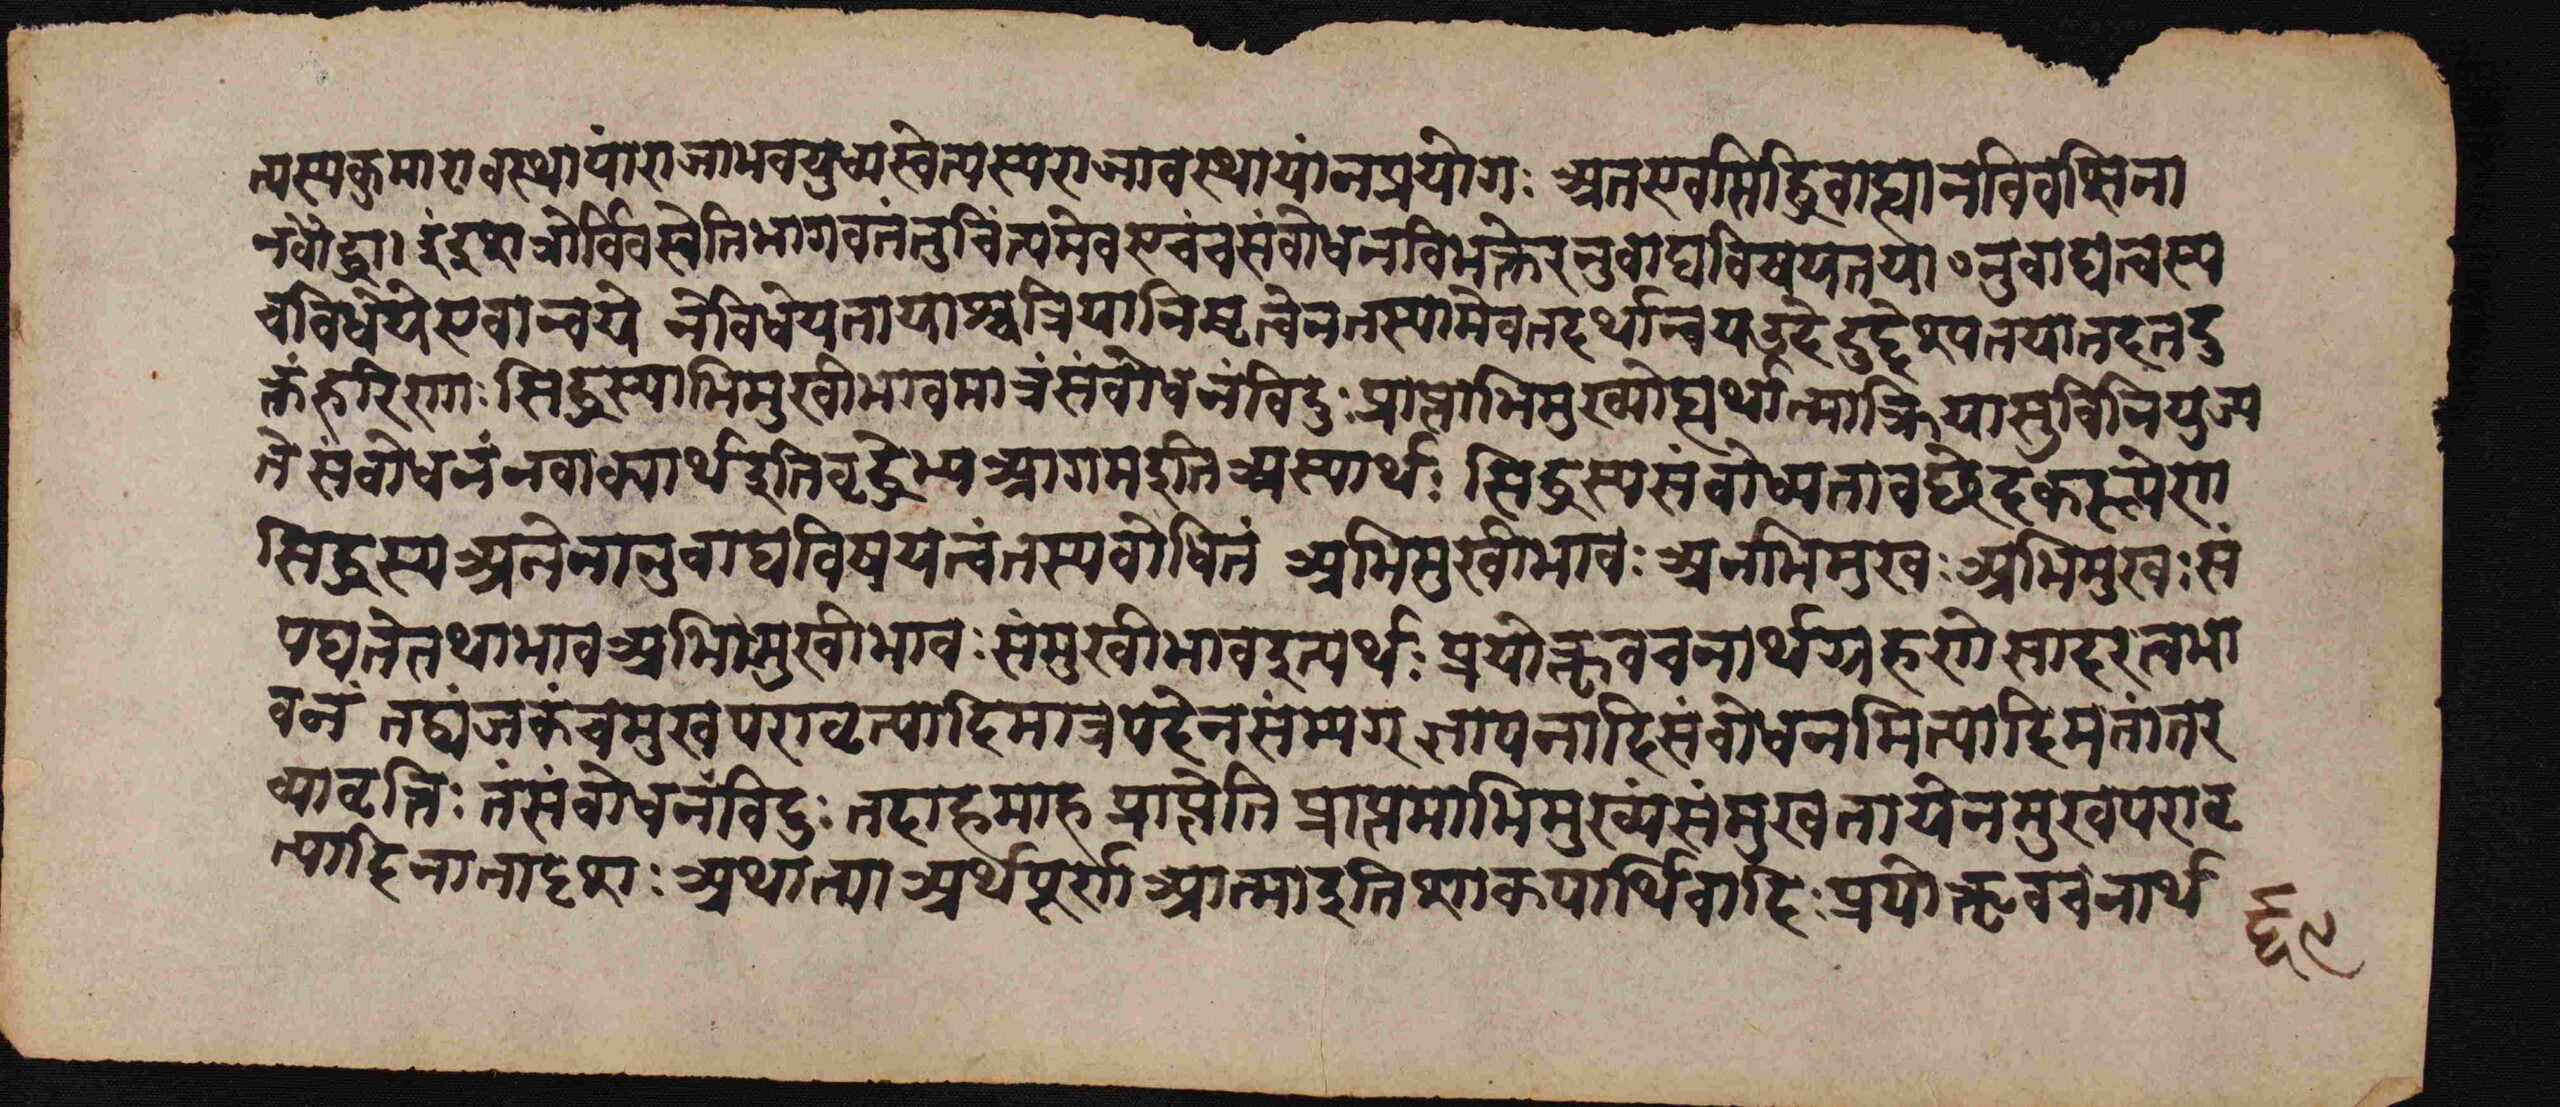 त्यस्यकुमारावस्थायांराजाभवयुध्यस्वेत्यस्यराजावस्थायांनप्रयोगः अतएवमिद्धिवाह्यानविवेप्सिना
नवोद्धा। इंद्रशत्रोर्विवर्स्वेतिभागवतंतुचिंत्यमेवएवंचसंबोधनविभक्तेरनुवाद्यविषयतया ऽनुवाद्यत्वस्य
चविधेयेएवान्वये नविधेयतायाश्चक्रियानिष्टत्वेनतस्यामेवतदर्थान्वयउद्देश्यतयातदन्तदु
क्तंहरिणाः सिद्धस्याभिमुखीभावमात्रंसंबोधनंविदुः प्राप्ताभिमुख्योह्यर्थात्माक्रियासुविनियुज्य
ते संबोधनंनवाक्यार्थइतिवृद्धेभ्यआगमइति अस्यार्थः सिद्धस्यसंबोध्यतावछेदकरूपेण
सिद्धस्य अनेनानुवाद्यविषयत्वंतस्यबोधितं अभिमुखीभावः अनभिमुखः अभिमुखः सं
पद्यतेतथाभावअभिमुखीभावः संमुखीभावइत्यर्थः प्रयोक्तृवचनार्थग्रहणेसादरत्वभा
वनं तद्व्यंजकंचमुखपरावृत्यादिमात्रपदेनसंम्यग्ज्ञापनादिसंबोधनमित्यादिमतांतर
व्यावृत्तिः तंसंबोधनंविदुः तदाहमाह प्राप्तेति प्राप्तमाभिमुख्यंसंमुखतायेनमुखपरावृ
त्यादिनातादृशः अथात्मा अर्थपूर्णो आत्माइतिशाकपार्थिवादिः प्रयोक्तृवचनार्थ
६९